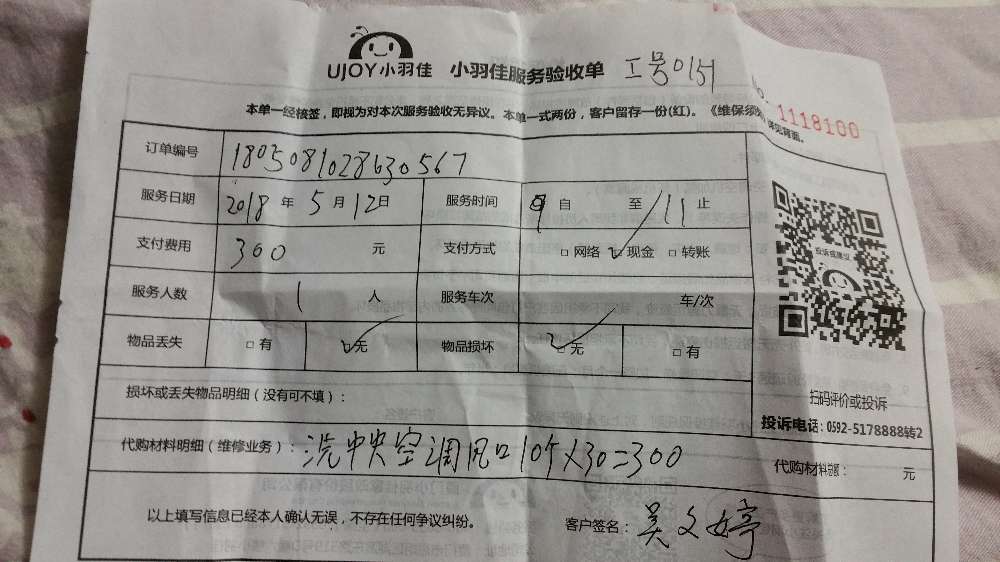 UJOY小羽佳 小羽佳服务验收单 工号0151
1118100
本单一经核签，即视为对本次服务验收无异议。本单一式两份，客户留存一份(红)。《维保须知》详见背面。
订单编号 1805081028630567
服务日期 2018 年 5 月 12 日 服务时间 9 自 至 11 止
支付费用 300 元 支付方式 □网络 ☑现金 □转账
服务人数 1 人 服务车次 车/次
物品丢失 □有 ☑无 物品损坏 ☑无 □有
投诉或建议
扫码评价或投诉
投诉电话：0592-5178888转2
损坏或丢失物品明细（没有可不填）：
代购材料明细（维修业务）：洗中央空调风口10个X30=300 代购材料总额： 元
以上填写信息已经本人确认无误，不存在任何争议纠纷。 客户签名：吴文婷